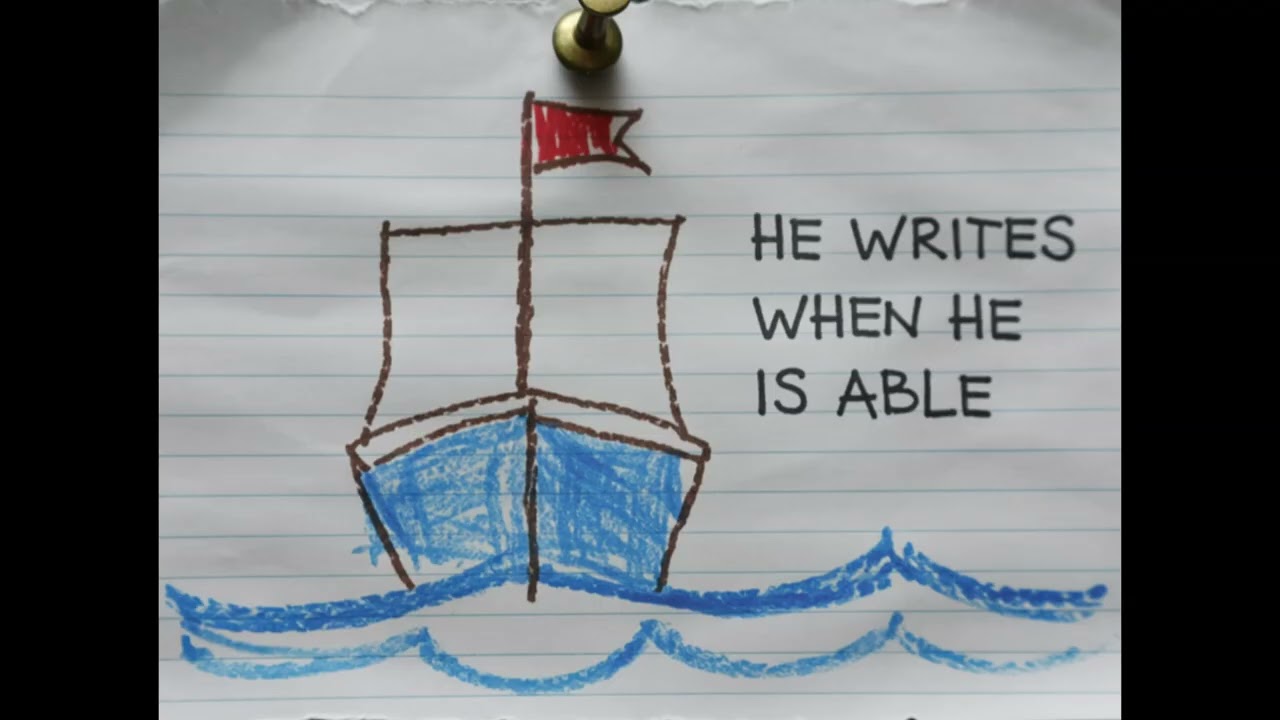 HE WRITES
WHEN HE
IS ABLE